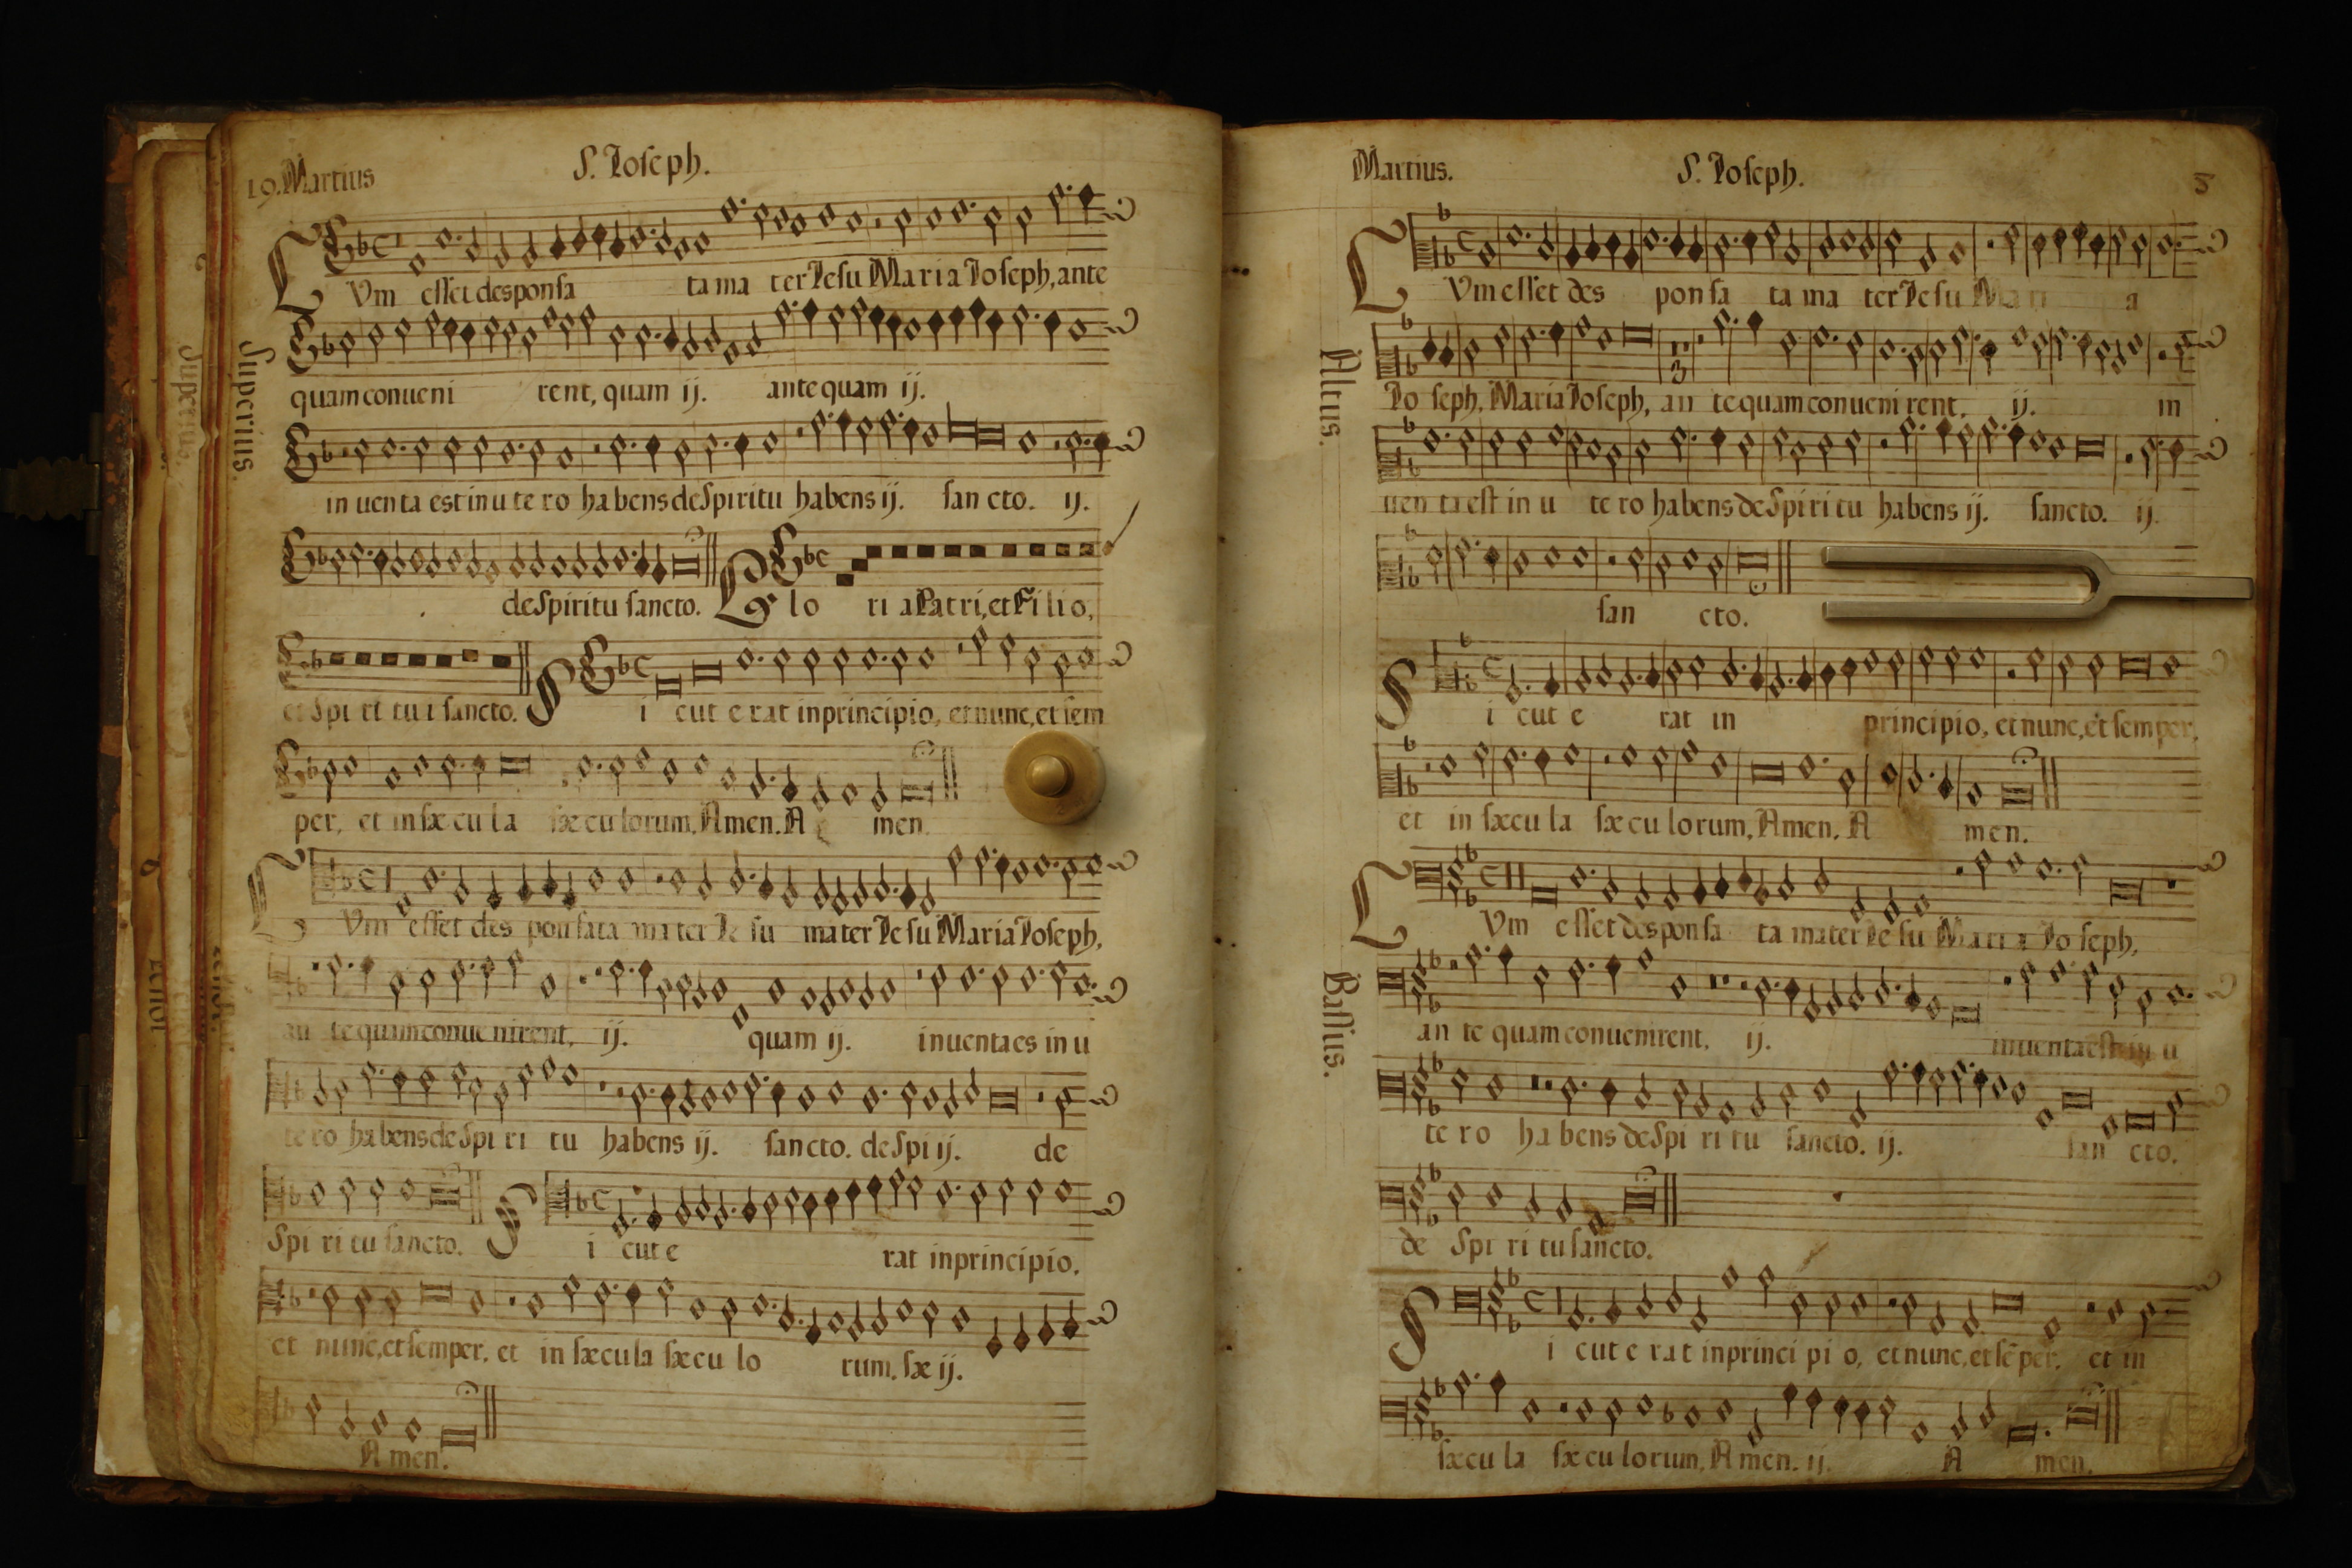 19. Martius
S. Ioseph.
Superius.
CVm esset desponsa ta ma ter Iesu Maria Ioseph, ante
quam conueni rent, quam ij. ante quam ij.
in uen ta est in u te ro habens de Spiritu habens ij. san cto. ij.
de Spiritu sancto. Glo ri a Patri, et Filio,
et Spi ri tu i sancto. Si cut e rat in principio, et nunc, et sem
per, et in sæ cu la sæ cu lorum, Amen. A men.
CVm esset des pon sata ma ter Ie su mater Ie su Maria Ioseph,
an te quam conue nirent, ij. quam ij. inuenta es in u
te ro habens de Spi ri tu habens ij. sancto. de Spi ij. de
Spi ri tu sancto. Si cut e rat in principio,
et nunc, et semper, et in sæcula sæcu lo rum, sæ ij.
A men.
Martius.
S. Ioseph.
8
Altus.
CVm esset des pon sa ta ma ter Ie su Mari a
Io seph, Maria Ioseph, an te quam conueni rent, ij. in
uen ta est in u te ro habens de Spi ri tu habens ij. sancto. ij.
san cto.
Si cut e rat in principio, et nunc, et semper,
et in sæcu la sæ cu lo rum, Amen. A men.
Bassus.
CVm esset despon sa ta mater Ie su Mari a Io seph,
an te quam conuenirent, ij. inuenta est in u
te ro ha bens de Spi ri tu sancto. ij. san cto.
de Spi ri tu sancto.
Si cut e rat in princi pi o, et nunc, et sẽper, et in
sæcu la sæ cu lorum, A men. ij. A men.